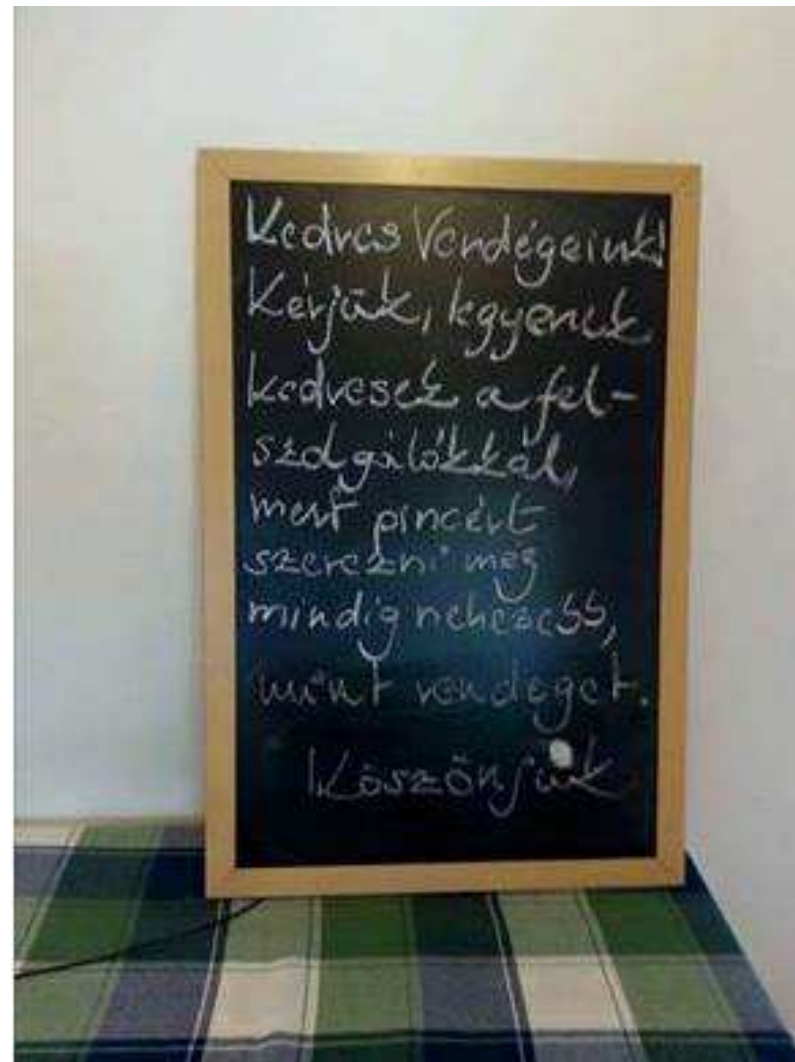 Kedves Vendégeink!
Kérjük, legyenek
kedvesek a fel-
szolgálókkal,
mert pincért
szerezni még
mindig nehezebb,
mint vendéget.
Köszönjük